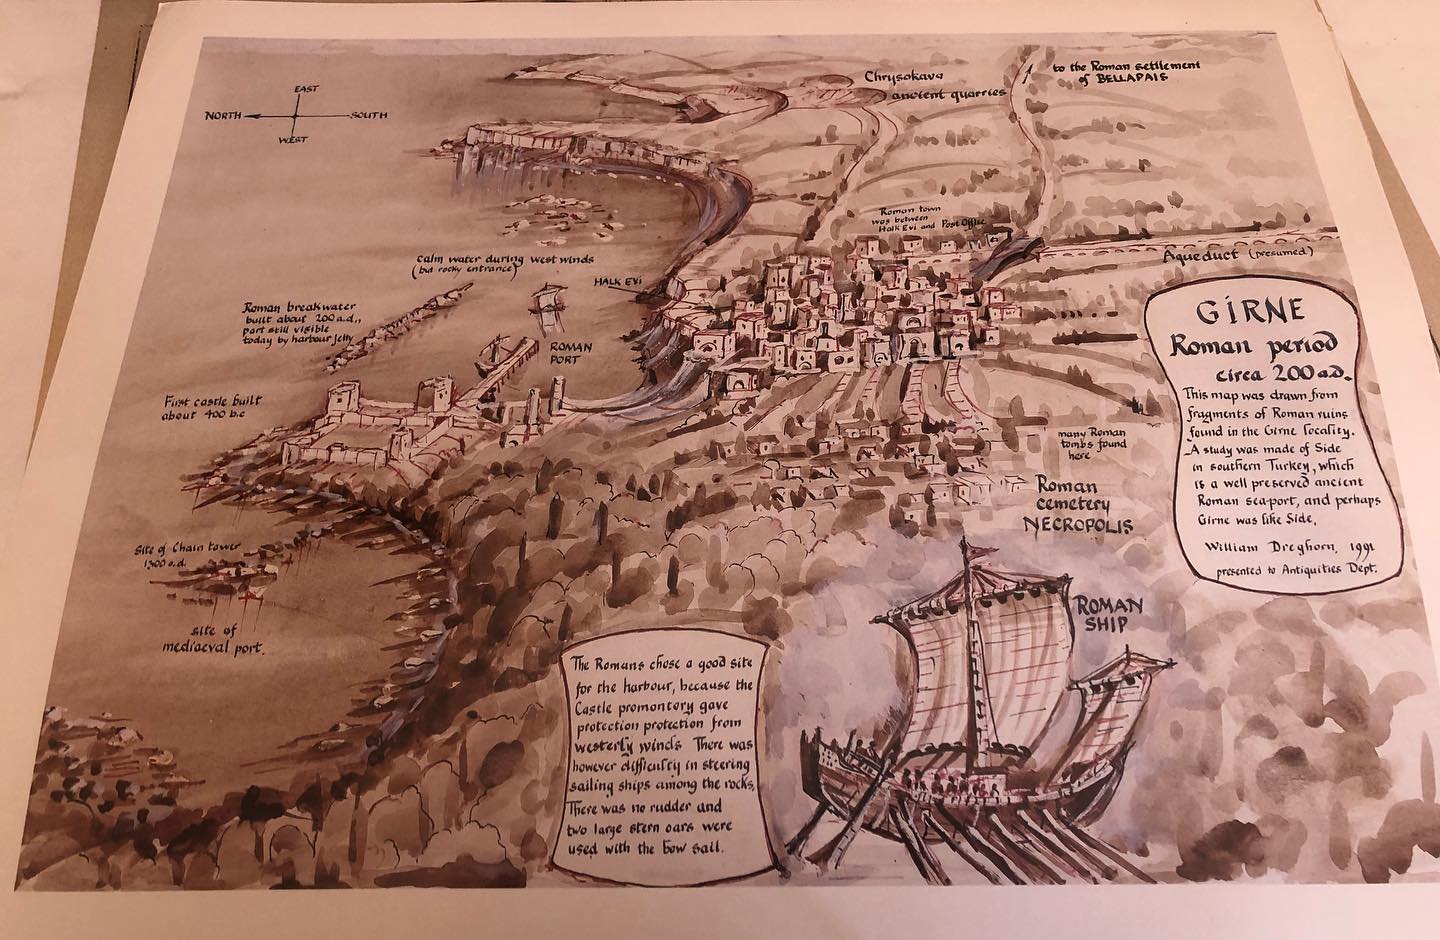 EAST
NORTH
SOUTH
WEST
Chrysokava
ancient quarries
to the Roman settlement
of BELLAPAIS
Roman town
was between
Halk Evi and Post Office
calm water during west winds
(but rocky entrance)
HALK EVi
Aqueduct (presumed)
Roman breakwater
built about 200 a.d.,
part still visible
today by harbour jetty
ROMAN
PORT
First castle built
about 400 b.c
GiRNE
Roman period
circa 200 a.d.
This map was drawn from
fragments of Roman ruins
found in the Girne locality.
A study was made of Side
in southern Turkey, which
is a well preserved ancient
Roman sea-port, and perhaps
Girne was like Side.
William Dreghorn, 1991
presented to Antiquities Dept.
many Roman
tombs found
here
Roman
cemetery
NECROPOLIS
Site of Chain tower
1300 a.d.
site of
mediaeval port.
ROMAN
SHIP
The Romans chose a good site
for the harbour, because the
Castle promontory gave
protection protection from
westerly winds There was
however difficulty in steering
sailing ships among the rocks.
There was no rudder and
two large stern oars were
used with the bow sail.